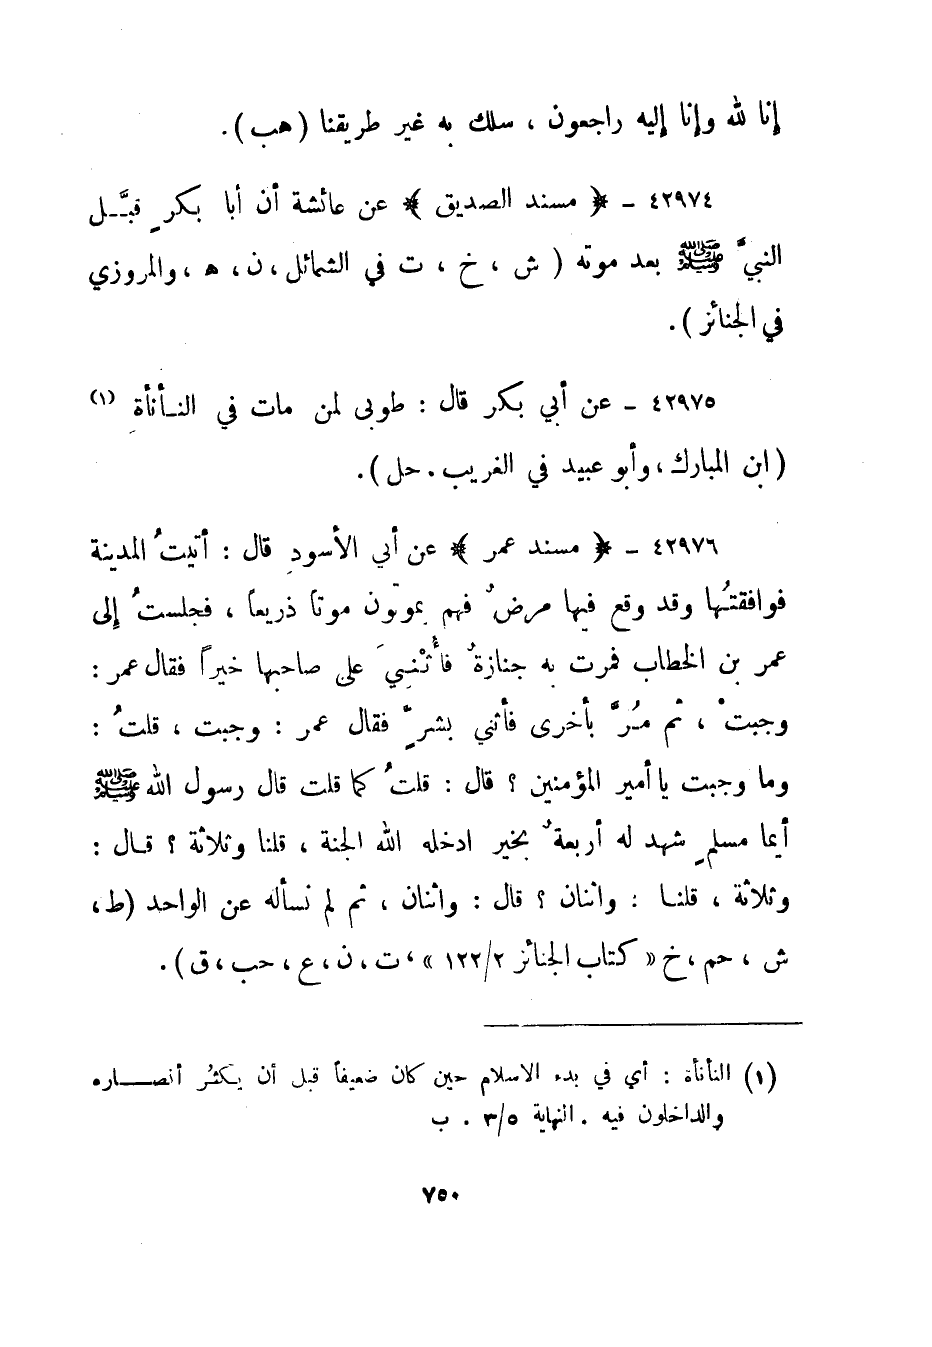 إنا لله وإنا إليه راجعون ، سلك به غير طريقنا ( هب ) .
٤٢٩٧٤ ـ ﴿ مسند الصديق ﴾ عن عائشة أن أبا بكرٍ قبَّـل
النبيَّ ﷺ بعد موته ( ش ، خ ، ت في الشمائل ، ن ، ه ، والمروزي
في الجنائز ) .
٤٢٩٧٥ ـ عن أبي بكر قال : طوبى لمن مات في النـأنأة (١)
( ابن المبارك ، وأبو عبيد في الغريب . حل ) .
٤٢٩٧٦ ـ ﴿ مسند عمر ﴾ عن أبي الأسودِ قال : أتيتُ المدينة
فوافقتُها وقد وقع فيها مرضٌ فهم يموتون موتاً ذريعاً ، فجلستُ إلى
عمر بن الخطاب فمرت به جنازةٌ فأُثْنِيَ على صاحبها خيراً فقال عمر :
وجبتْ ، ثم مُرَّ بأخرى فأثني بشرٍّ فقال عمر : وجبت ، قلتُ :
وما وجبت يا أمير المؤمنين ؟ قال : قلتُ كما قلت قال رسول الله ﷺ
أيما مسلمٍ شهد له أربعةٌ بخير ادخله الله الجنة ، قلنا وثلاثة ؟ قـال :
وثلاثة ، قلنـا : واثنان ؟ قال : واثنان ، ثم لم نسأله عن الواحد ( ط ،
ش ، حم ، خ « كتاب الجنائز ١٢٢/٢ » ، ت ، ن ، ع ، حب ، ق ) .
(١) النأنأة : أي في بدء الاسلام حين كان ضعيفاً قبل أن يكثُر أنصــاره
والداخلون فيه . النهاية ٣/٥ . ب
٧٥٠